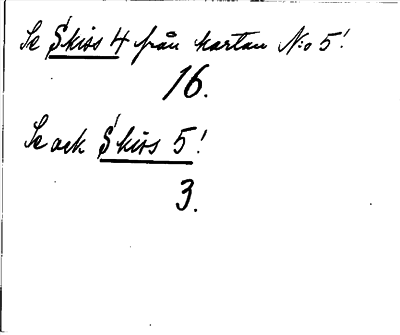 Se Skiss 4 från kartan N:o 5!
16.
Se ock Skiss 5!
3.